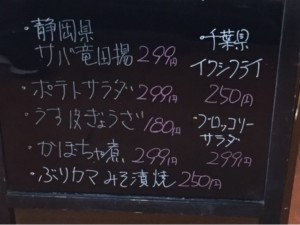 ・静岡県
サバ竜田揚 299円
・ポテトサラダ 299円
・うす皮ぎょうざ 180円
・かぼちゃ煮 299円
・ぶりカマみそ漬焼 250円
千葉県
イワシフライ
250円
・ブロッコリー
サラダ
299円